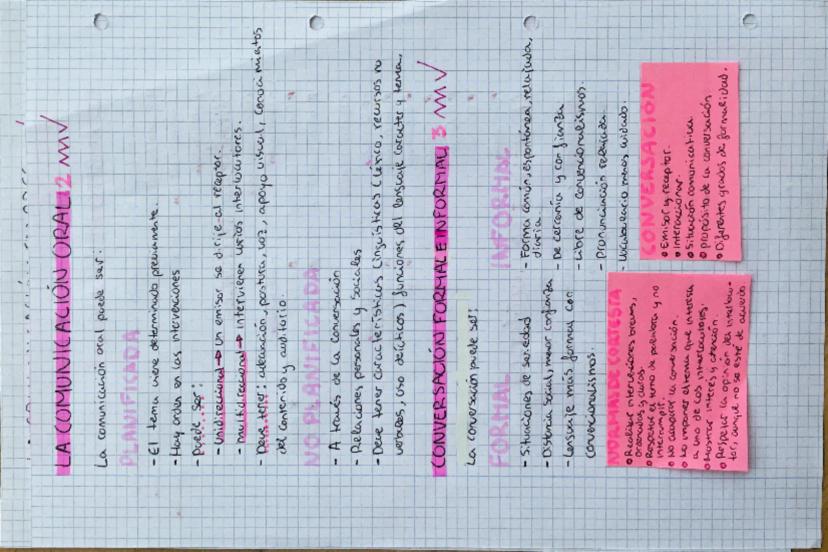 LA COMUNICACIÓN ORAL 2
La comunicación oral puede ser:
PLANIFICADA
- El tema viene determinado previamente.
- Hay orden en las intervenciones
- Puede ser:
- unidireccional → un emisor se dirije al receptor.
- multidireccional → intervienen varios interlocutores.
- Deve tener: adecuación, postura, voz, apoyo visual, conocimientos
del contenido y auditorio.
NO PLANIFICADA
- A través de la conversación
- Relaciones personales y sociales
- Deve tener características lingüísticas (léxico, recursos no
verbales, uso deícticos) funciones del lenguaje caracter y tema.
CONVERSACIÓN FORMAL E INFORMAL 3
La conversación puede ser:
FORMAL
- Situaciones de seriedad
- Distancia social, menor confianza
- Lenguaje más formal con
convencionalismos.
INFORMAL
- Forma común, espontánea, relajada,
diaria.
- De cercanía y confianza
- Libre de convencionalismos.
- Pronunciación relajada.
- Vocabulario menos cuidado.
NORMAS DE CORTESÍA
• Realizar intervenciones breves,
ordenadas y claras.
• Respetar el turno de palabra y no
interrumpir.
• No acaparar la conversación.
• No imponer el tema que interesa
a uno de los interlocutores.
• Mostrar interés y atención.
• Respetar la opinión del interlocu-
tor, aunque no se esté de acuerdo
CONVERSACIÓN
• Emisor y receptor.
• Interaccionar.
• Situación comunicativa
• propósito de la conversación
• Diferentes grados de formalidad.